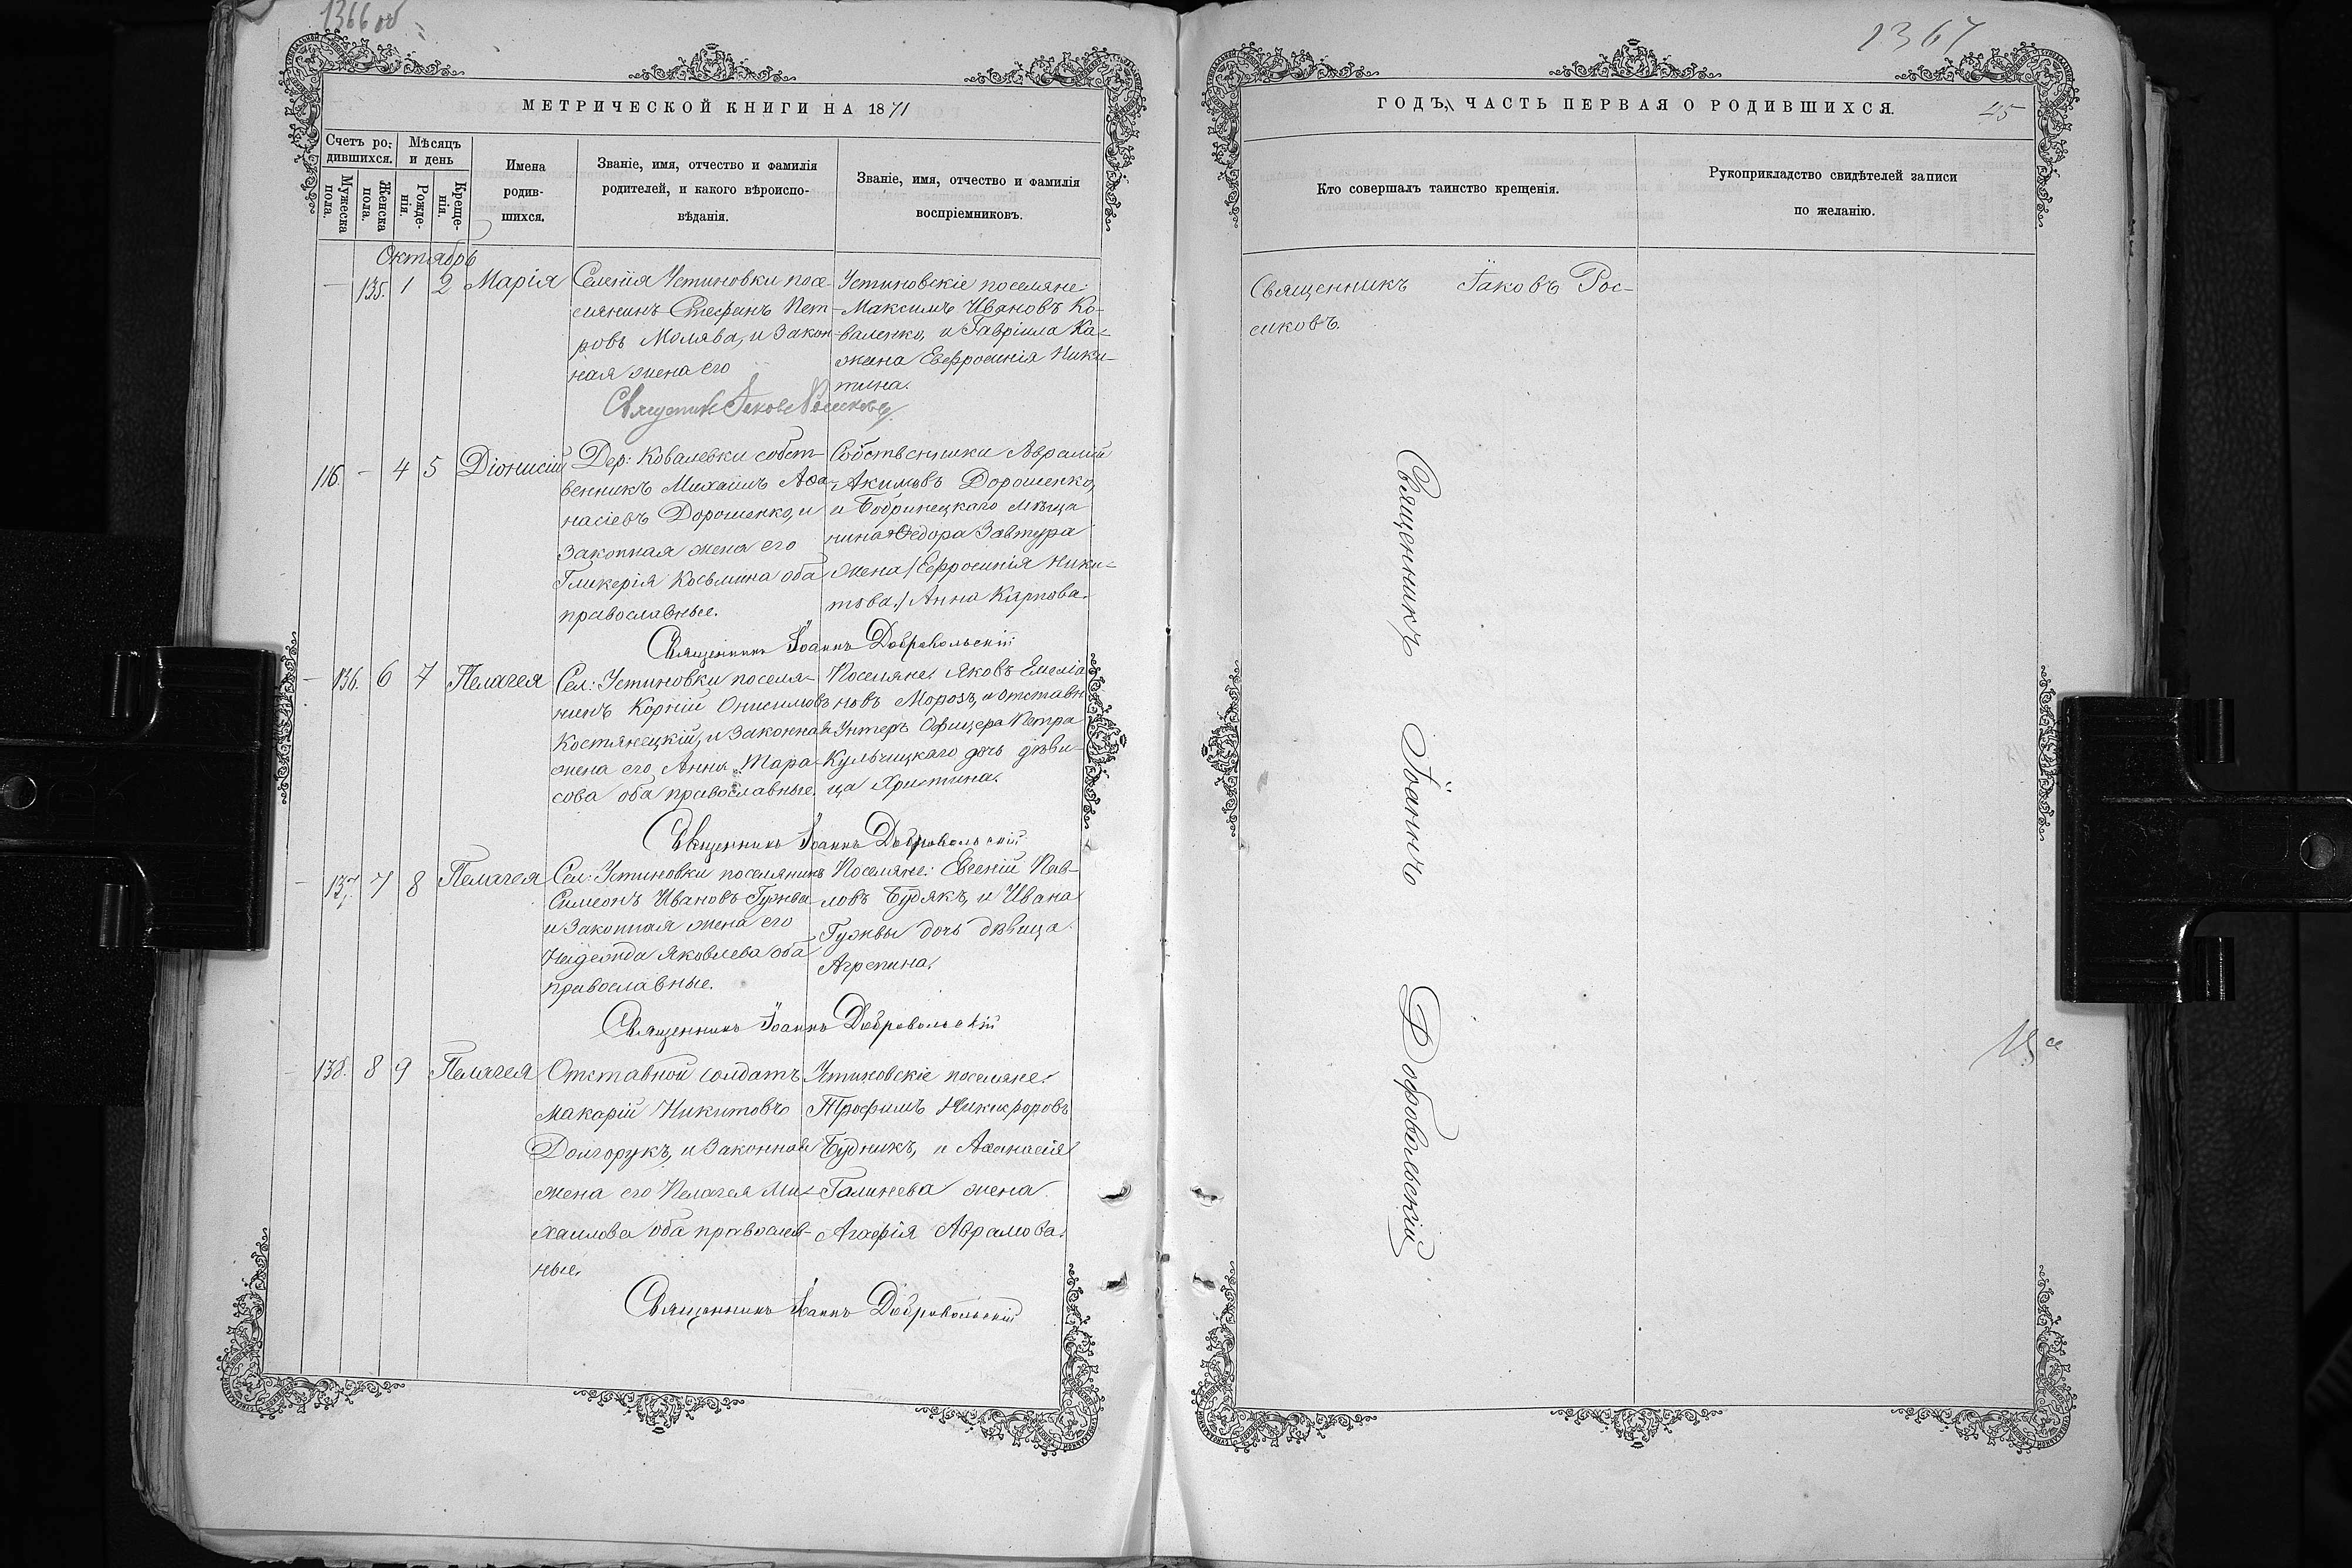 1366 об
МЕТРИЧЕСКОЙ КНИГИ НА 1871
Счетъ ро-
дившихся.
Мѣсяцъ
и день
Мужеска
пола.
Женска
пола.
Рожде-
нія.
Креще-
нія.
Имена
родив-
шихся.
Званіе, имя, отчество и фамилія
родителей, и какого вѣроиспо-
вѣданія.
Званіе, имя, отчество и фамилія
воспріемниковъ.
Октябрь
— 135. 1 2 Марія
Селенія Устиновки посе-
лянинъ Стефанъ Пет-
ровъ Молява, и закон-
ная жена его
Устиновскіе поселяне:
Максимъ Ивановъ Ко-
валенко, и Гавріила Ка-
жана Евфросинія Ники-
тина.
Священникъ Іаковъ Росликовъ
116. — 4 5 Діонисій
Дер: Ковалевки собст-
венникъ Михаилъ Аѳа-
насіевъ Дорошенко, и
законная жена его
Гликерія Косьмина оба
православные.
Собственники Аврамій
Акимовъ Дорошенко,
и Бобринецкаго мѣща
нина Ѳедора Завтура
жена /Евфросинія Ники-
това./ Анна Карпова.
Священникъ Іоаннъ Добровольскій
— 136. 6 7 Пелагея
Сел: Устиновки поселя-
нинъ Корній Онисимовъ
Костянецкій, и законная
жена его Анна Тара-
сова оба православные.
Поселяне: Яковъ Емеліа
новъ Морозъ, и отставн
Унтеръ Офицера Петра
Кульчицкаго дочь дѣви-
ца Христина.
Священникъ Іоаннъ Добровольскій
— 137. 7 8 Пелагея
Сел: Устиновки поселянинъ
Симеонъ Ивановъ Гужва
и законная жена его
Надежда Яковлева оба
православные.
Поселяне: Евгеній Пав-
ловъ Будякъ, и Ивана
Гужвы дочь дѣвица
Агрепина.
Священникъ Іоаннъ Добровольскій
— 138. 8 9 Пелагея
Отставной солдатъ
Макарій Никитовъ
Долгорукъ, и законная
жена его Пелагея Ми-
хаилова оба православ-
ные.
Устиновскіе поселяне:
Трофимъ Никифоровъ
Будникъ, и Аѳанасія
Галинева жена
Агафія Аврамова.
Священникъ Іоаннъ Добровольскій
1367
ГОДЪ, ЧАСТЬ ПЕРВАЯ О РОДИВШИХСЯ.
45
Кто совершалъ таинство крещенія.
Рукоприкладство свидѣтелей записи
по желанію.
Священникъ Іаковъ Рос-
ликовъ.
Священникъ Іоаннъ Добровольскій